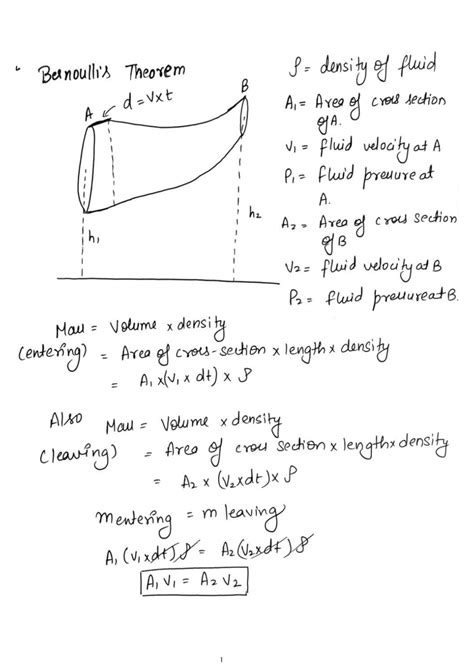 Bernoulli's Theorem
ρ = density of fluid
A d = v×t B
A₁ = Area of cross section
of A.
V₁ = fluid velocity at A
P₁ = fluid pressure at
A.
h₁ h₂
A₂ = Area of cross section
of B
V₂ = fluid velocity at B
P₂ = fluid pressure at B.
Mass = Volume × density
(entering) = Area of cross-section × length × density
= A₁ × (V₁ × dt) × ρ
Also Mass = Volume × density
(leaving) = Area of cross section × length × density
= A₂ × (V₂ × dt) × ρ
mentering = m leaving
A₁ (V₁ × dt) ρ = A₂ (V₂ × dt) ρ
A₁ V₁ = A₂ V₂
1